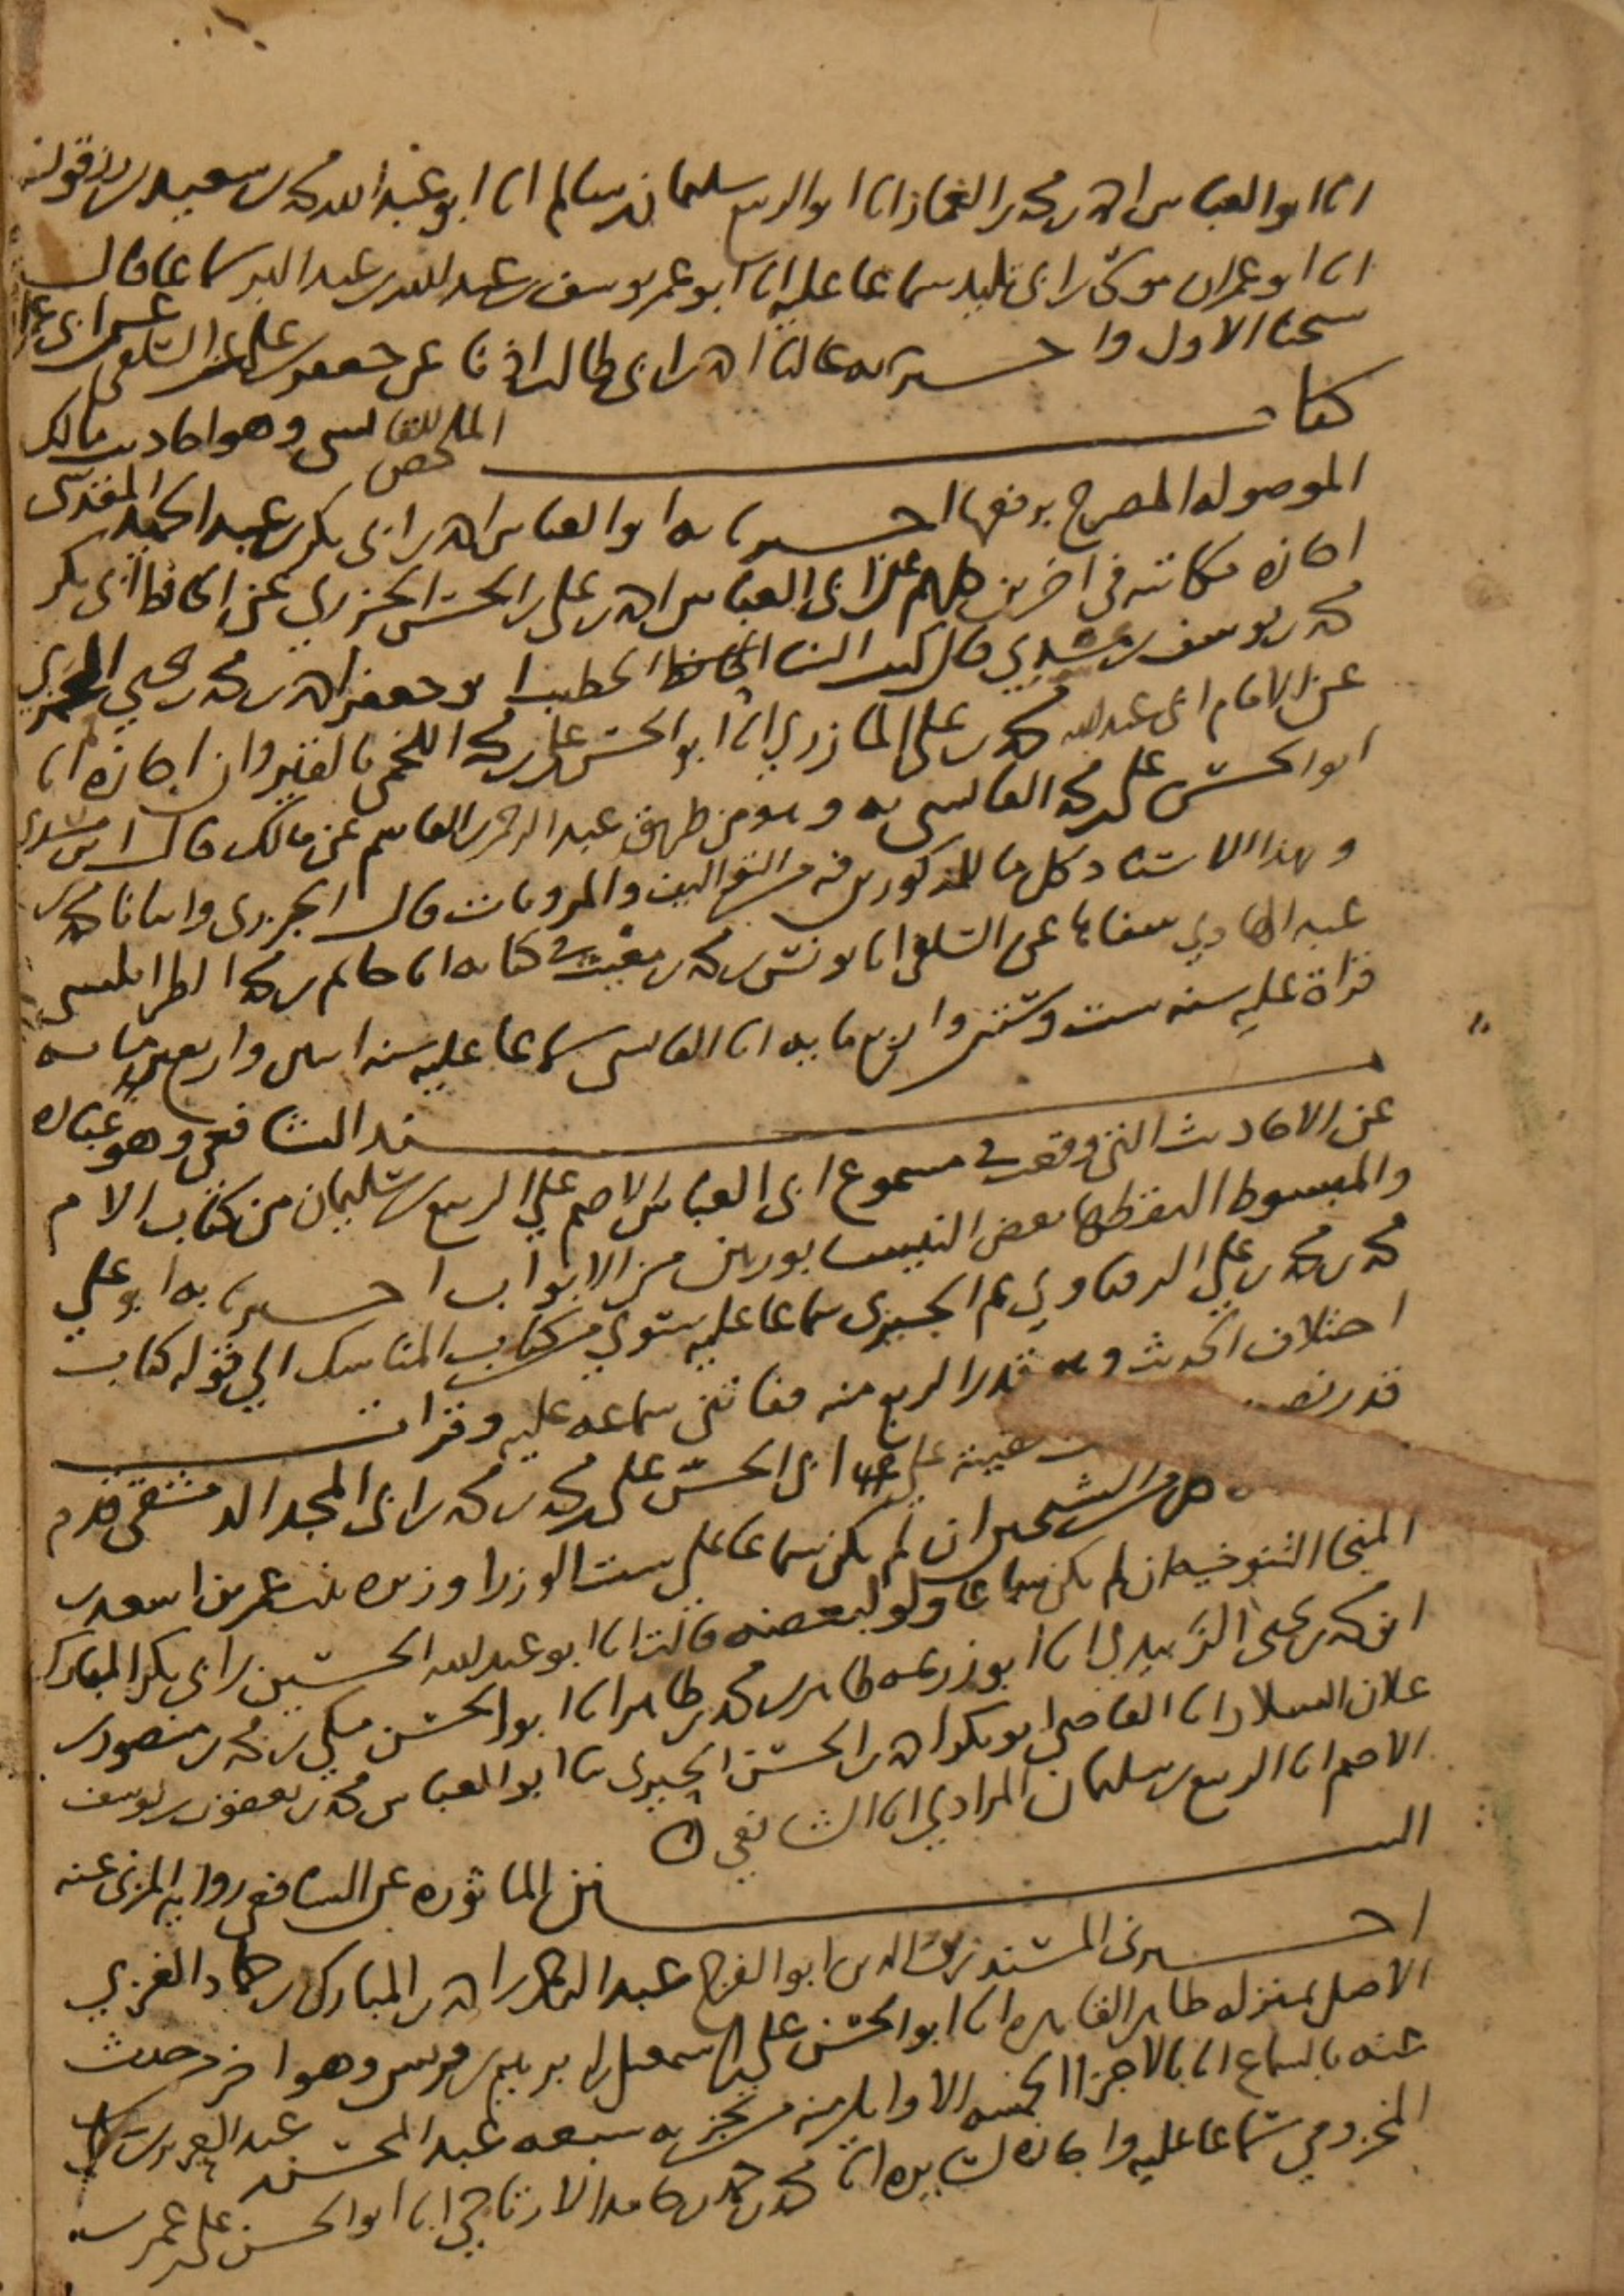 انا ابو العباس احمد بن محمد بن الغماز انا ابو الربيع سليمان بن سالم انا ابو عبد الله محمد بن سعيد بن زرقون
انا ابو عمران موسى بن ابي تليد سماعا عليه انا ابو عمر يوسف بن عبد الله بن عبد البر سماعا قال
شيخنا الاول واخبرنيه عاليا احمد بن ابي طالب اذنا عن جعفر بن علي عن السلفي عن ابي عمران
كتاب الملخص للقابسي وهو احاديث مالك
الموصوله المصرح برفعها اخبرنا به ابو العباس احمد بن ابي بكر بن عبد الحميد المقدسي
اجازه مكاتبه في اخرين كلهم عن ابي العباس احمد بن علي بن الحسن الجزري عن الحافظ ابي بكر
محمد بن يوسف بن مسدي قال كتب الينا الخطيب ابو جعفر احمد بن محمد بن يحيى الحميري
عن الامام ابي عبد الله محمد بن علي المازري انا ابو الحسن علي بن محمد اللخمي بالقيروان اجازه انا
ابو الحسن علي بن محمد القابسي به وهو من طريق عبد الرحمن بن القاسم عن مالك قال ابن مسدي
وبهذا الاسناد كل ما للمذكورين فيه من التواليف والمرويات قال الجزري وانبانا محمد بن
عبد الهادي شفاها عن السلفي انا يونس بن محمد بن مغيث في كتابه انا حاتم بن محمد الطرابلسي
قراة عليه سنه ست وستين واربع مايه انا القابسي سماعا عليه سنه اثنين واربعمايه
مسند الشافعي وهو عباره
عن الاحاديث التي وقعت في مسموع ابي العباس الاصم علي الربيع بن سليمان من كتاب الام
والمبسوط التقطها بعض النيسابوريين من الابواب اخبرنا به ابو علي
محمد بن محمد بن علي الزفتاوي ثم الجيزي سماعا عليه سوي من كتاب المناسك الي قوله كتاب
اختلاف الحديث وهو قدر الربع منه ففاتني سماعه عليه وقرات
قدر نصف
غيبته علي ابي الحسن علي بن محمد بن محمد بن ابي المجد الدمشقي قدم
ان لم يكن سماعا علي ست الوزرا وزيره بنت عمر بن اسعد بن
المنجا التنوخيه ان لم يكن سماعا ولو لبعضه قالت انا ابو عبد الله الحسين بن ابي بكر المبارك
ابن محمد بن يحيى الزبيدي انا ابو زرعه طاهر بن محمد بن طاهر انا ابو الحسن مكي بن محمد بن منصور بن
علان السلار انا القاضي ابو بكر احمد بن الحسن الحيري ثنا ابو العباس محمد بن يعقوب بن يوسف
الاصم انا الربيع بن سليمان المرادي انا الشافعي
السنن الماثوره عن الشافعي روايه المزني عنه
اخبرني المسند زين الدين ابو الفرج عبد الرحمن بن احمد بن المبارك بن حماد الغزي
الاصل بمنزله ظاهر القاهره انا ابو الحسن علي بن اسمعيل بن ابرهيم بن قريش وهو اخر من حدث
عنه بالسماع انا بالاجزا الخمسه الاوايل منه من تجزيه سبعه عبد المحسن بن عبد العزيز بن علي
المخزومي سماعا عليه واجازه لسايره انا محمد بن حمد بن حامد الارتاحي انا ابو الحسن علي بن عمر